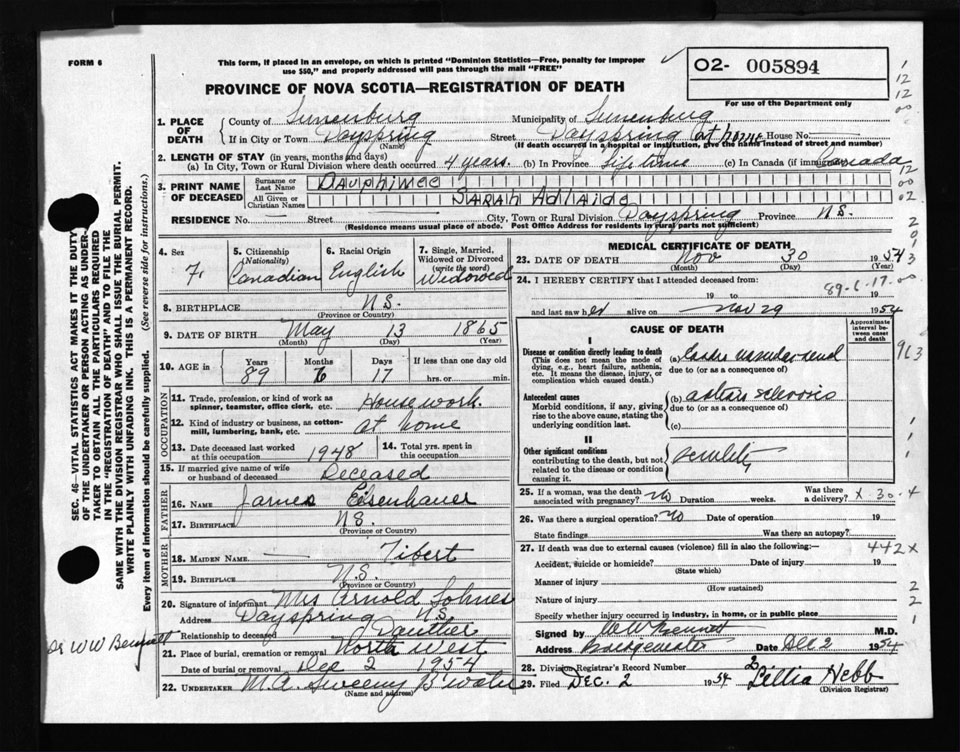 FORM 6
This form, if placed in an envelope, on which is printed "Dominion Statistics—Free, penalty for improper
use $50," and properly addressed will pass through the mail "FREE"
O2- 005894
PROVINCE OF NOVA SCOTIA—REGISTRATION OF DEATH
For use of the Department only
1. PLACE OF DEATH
County of Lunenburg Municipality of Lunenburg
If in City or Town Dayspring (Name) Street Dayspring (at home House No.
(If death occurred in a hospital or institution, give the name instead of street and number)
2. LENGTH OF STAY (in years, months and days)
(a) In City, Town or Rural Division where death occurred 4 years. (b) In Province Life time (c) In Canada (if immigrant) Canada
3. PRINT NAME OF DECEASED
Surname or Last Name Dauphinee
All Given or Christian Names Sarah Adlaide
RESIDENCE No. Street City, Town or Rural Division Dayspring Province N.S.
(Residence means usual place of abode. Post Office Address for residents in rural parts not sufficient)
4. Sex 7.
5. Citizenship (Nationality) Canadian
6. Racial Origin English
7. Single, Married, Widowed or Divorced (write the word) Widowed
8. BIRTHPLACE N.S.
(Province or Country)
9. DATE OF BIRTH May 13 1865
(Month) (Day) (Year)
10. AGE in Years 89 Months 6 Days 17 If less than one day old hrs. or min.
OCCUPATION
11. Trade, profession, or kind of work as spinner, teamster, office clerk, etc. House work.
12. Kind of industry or business, as cotton-mill, lumbering, bank, etc. at home
13. Date deceased last worked at this occupation 1948
14. Total yrs. spent in this occupation
15. If married give name of wife or husband of deceased Deceased
FATHER
16. NAME James Eisenhauer
17. BIRTHPLACE N.S.
(Province or Country)
MOTHER
18. MAIDEN NAME. — Tibert
19. BIRTHPLACE N.S.
(Province or Country)
20. Signature of informant Mrs Arnold Lohnes
Address Dayspring N.S.
Relationship to deceased Daughter
21. Place of burial, cremation or removal North West
Date of burial or removal Dec 2 1954
22. UNDERTAKER M.A. Sweeny B'water
(Name and address)
MEDICAL CERTIFICATE OF DEATH
23. DATE OF DEATH Nov 30 1954
(Month) (Day) (Year)
24. I HEREBY CERTIFY that I attended deceased from:
89-6-17
19 to 19
and last saw her alive on Nov 29 1954
CAUSE OF DEATH
Approximate interval between onset and death
I
Disease or condition directly leading to death
(This does not mean the mode of dying, e.g., heart failure, asthenia, etc. It means the disease, injury, or complication which caused death.)
(a) Cardio vascular renal
due to (or as a consequence of)
Antecedent causes
Morbid conditions, if any, giving rise to the above cause, stating the underlying condition last.
(b)
due to (or as a consequence of)
(c)
II
Other significant conditions
contributing to the death, but not related to the disease or condition causing it.
senility
25. If a woman, was the death associated with pregnancy? no Duration weeks. Was there a delivery?
X-30-4
26. Was there a surgical operation? no Date of operation 19
State findings Was there an autopsy?
27. If death was due to external causes (violence) fill in also the following:—
442X
Accident, suicide or homicide? Date of injury 19
(State which)
Manner of injury
(How sustained)
Nature of injury
Specify whether injury occurred in industry, in home, or in public place
Signed by W W Bennett M.D.
Address Bridgewater Date Dec 2 1954
28. Division Registrar's Record Number 2
29. Filed Dec. 2 1954 Lillia Hebb
(Division Registrar)
SEC. 46—VITAL STATISTICS ACT MAKES IT THE DUTY
OF THE UNDERTAKER OR PERSON ACTING AS UNDER-
TAKER TO OBTAIN ALL THE PARTICULARS REQUIRED
IN THE "REGISTRATION OF DEATH" AND TO FILE THE
SAME WITH THE DIVISION REGISTRAR WHO SHALL ISSUE THE BURIAL PERMIT.
WRITE PLAINLY WITH UNFADING INK. THIS IS A PERMANENT RECORD.
Every item of information should be carefully supplied. (See reverse side for instructions.)
Dr W W Bennett